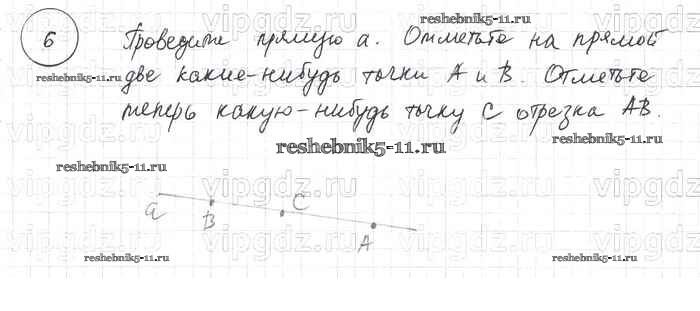 vipgdz.ru vipgdz.ru vipgdz.ru vipgdz.ru
reshebnik5-11.ru
6 Проведите прямую a. Отметьте на прямой
reshebnik5-11.ru
две какие-нибудь точки A и B. Отметьте
теперь какую-нибудь точку C отрезка AB.
vipgdz.ru vipgdz.ru vipgdz.ru vipgdz.ru
reshebnik5-11.ru
reshebnik5-11.ru
reshebnik5-11.ru
vipgdz.ru vipgdz.ru vipgdz.ru vipgdz.ru
a B C A
vipgdz.ru vipgdz.ru vipgdz.ru vipgdz.ru
reshebnik5-11.ru reshebnik5-11.ru reshebnik5-11.ru